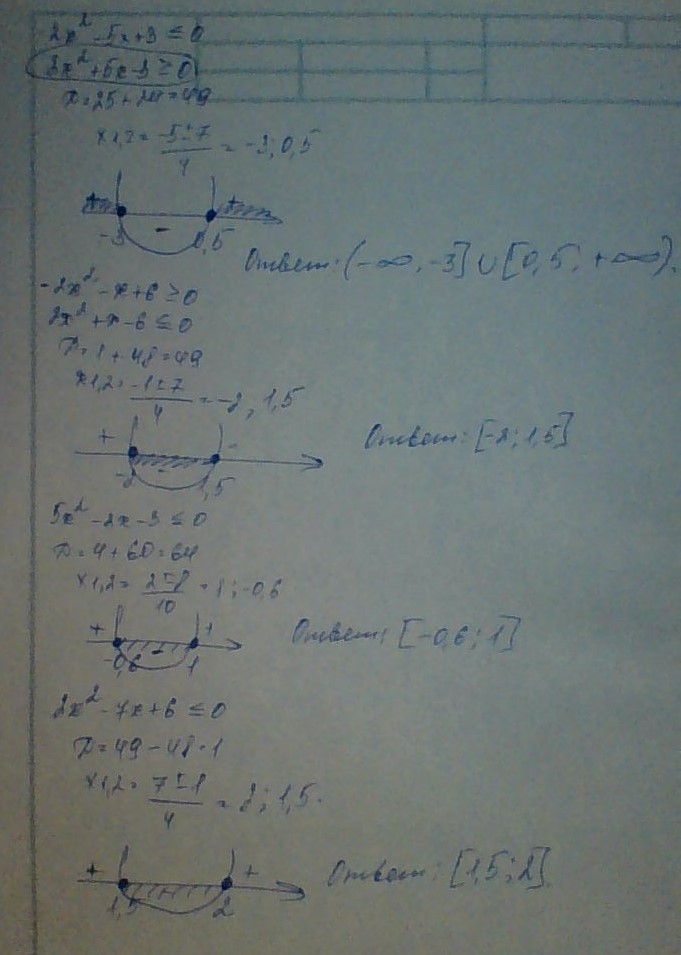 -2x² - 5x + 3 ≤ 0
2x² + 5x - 3 ≥ 0
D = 25 + 24 = 49
x1,2 = (-5 ± 7)/4 = -3; 0,5
+ - +
-3 0,5
Ответ: (-∞, -3] ∪ [0,5, +∞).
-2x² - x + 6 ≥ 0
2x² + x - 6 ≤ 0
D = 1 + 48 = 49
x1,2 = (-1 ± 7)/4 = -2, 1,5
+ -
-2 1,5
Ответ: [-2; 1,5]
5x² - 2x - 3 ≤ 0
D = 4 + 60 = 64
x1,2 = (2 ± 8)/10 = 1; -0,6
+ - +
-0,6 1
Ответ: [-0,6; 1]
2x² - 7x + 6 ≤ 0
D = 49 - 48 = 1
x1,2 = (7 ± 1)/4 = 2; 1,5.
+ +
1,5 2
Ответ: [1,5; 2].